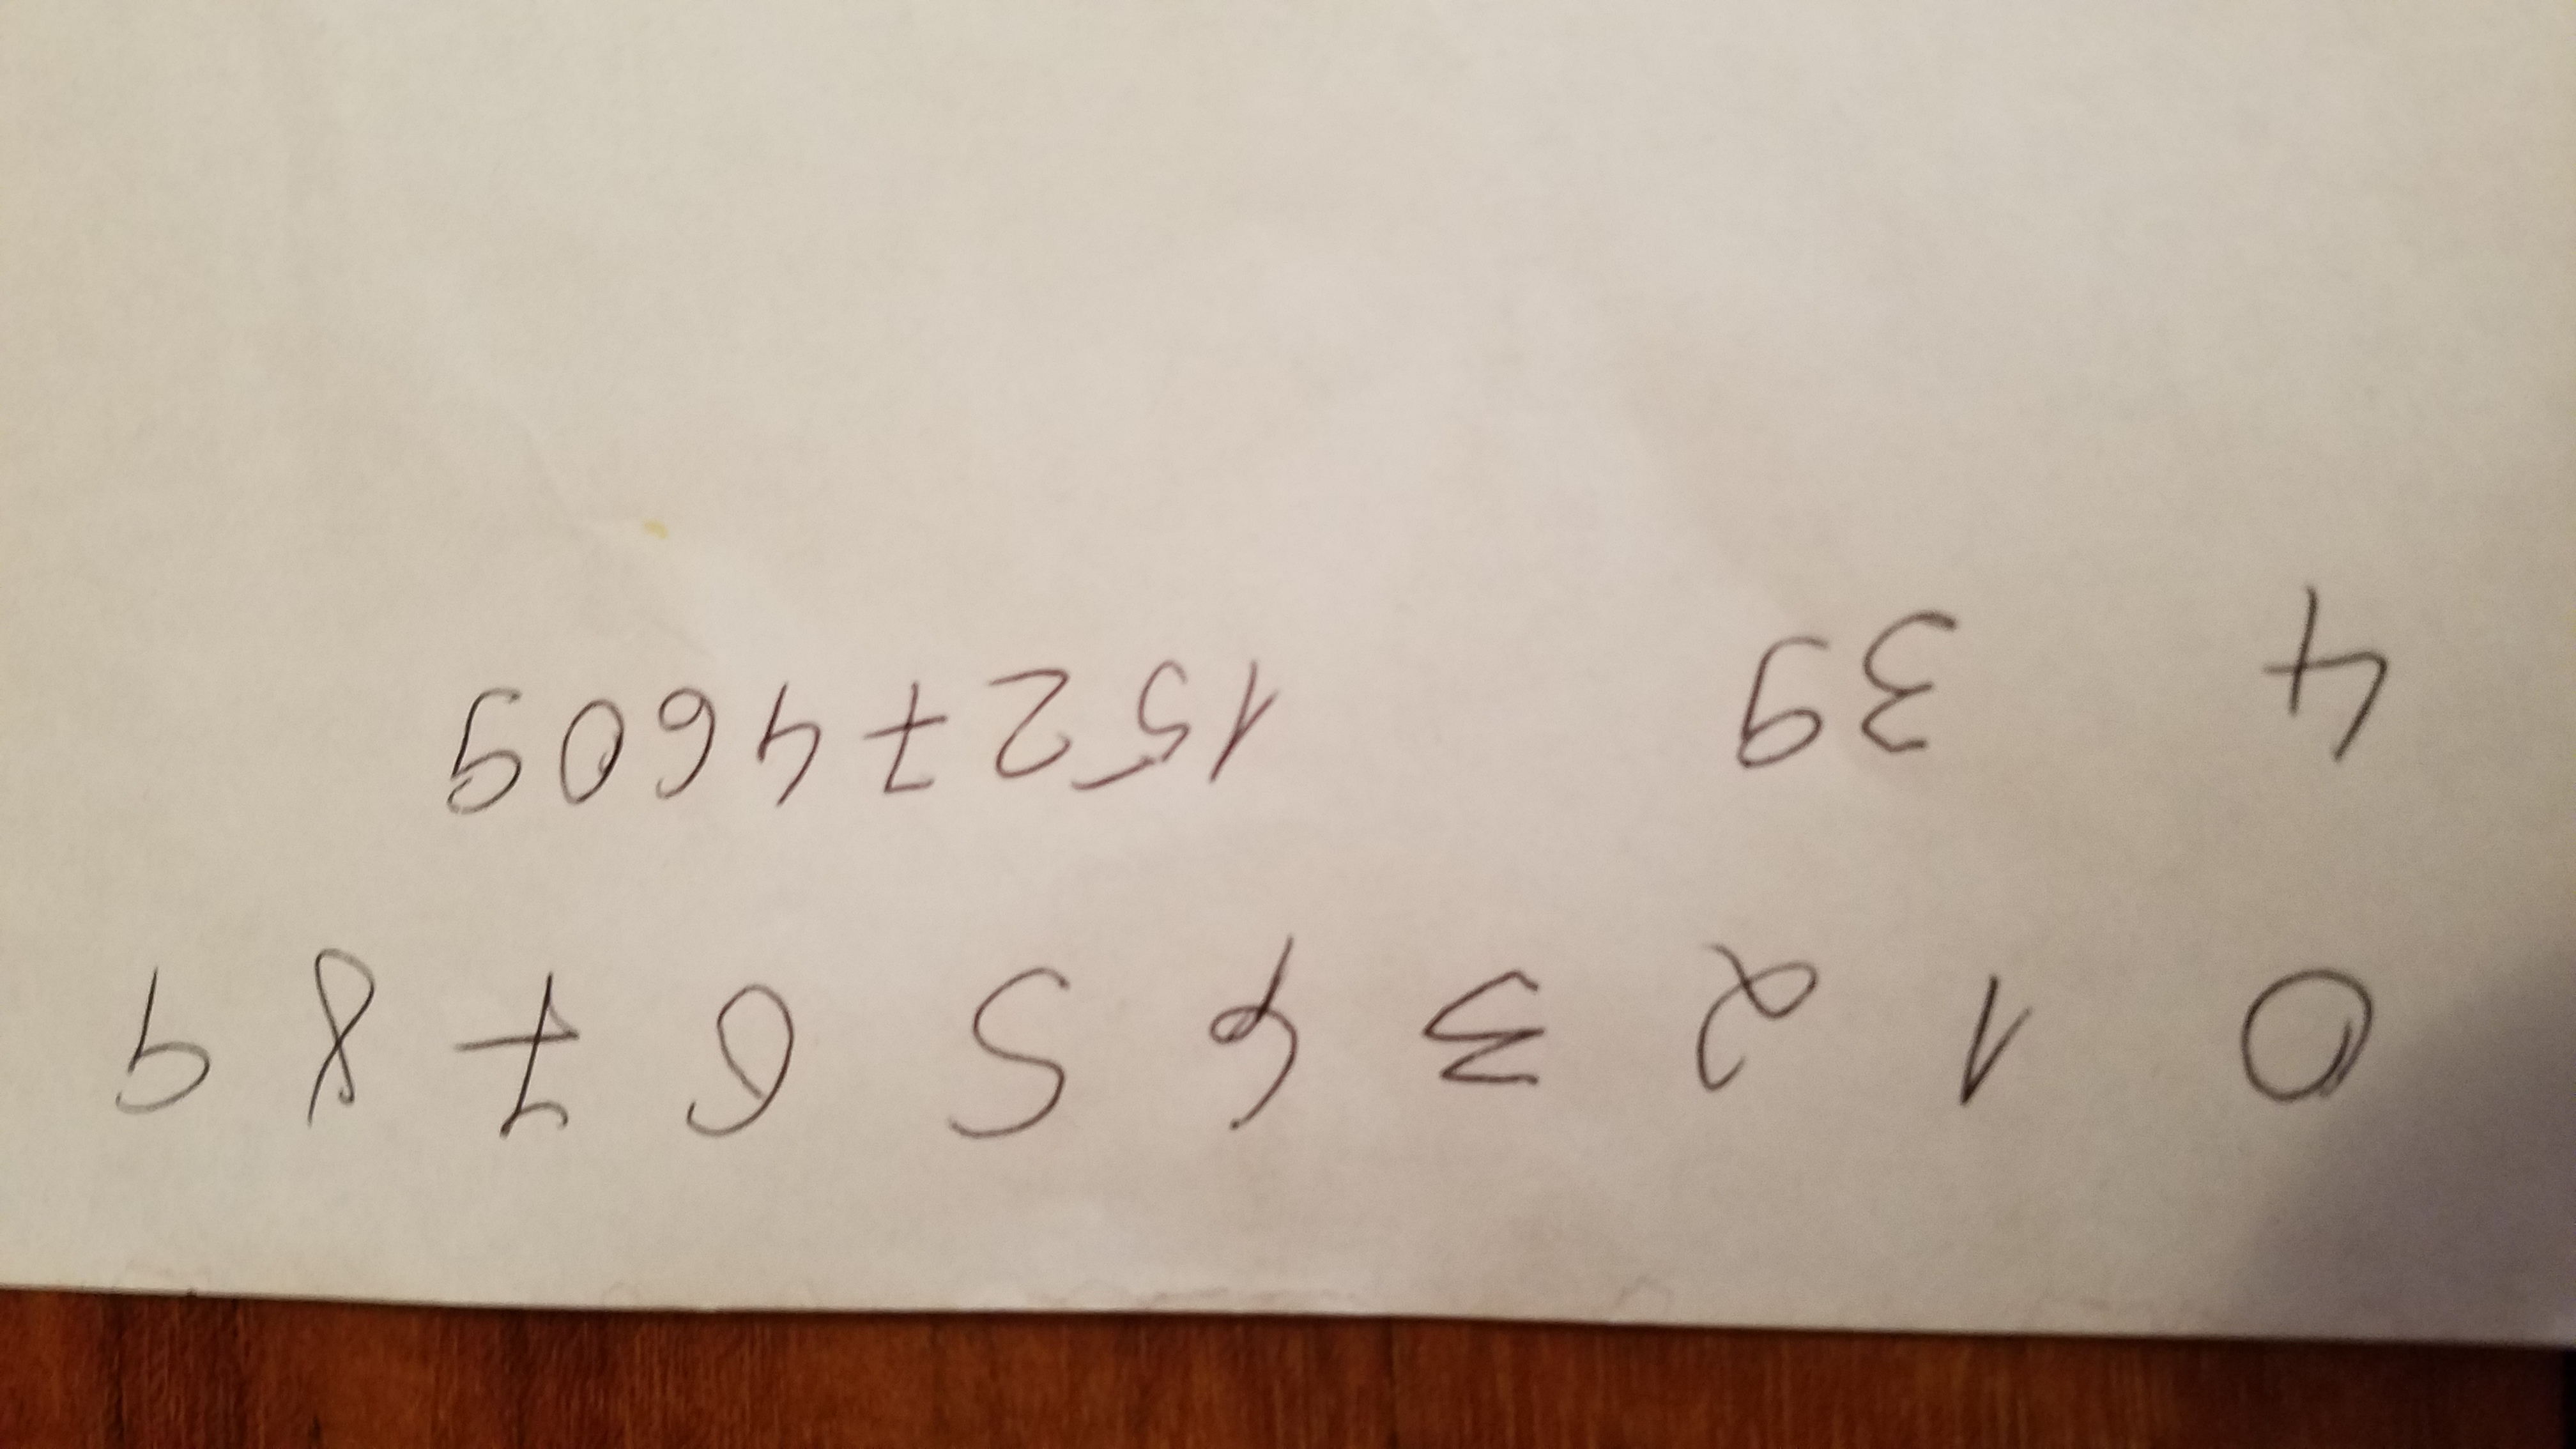 0 1 2 3 4 5 6 7 8 9
4 39 15274609